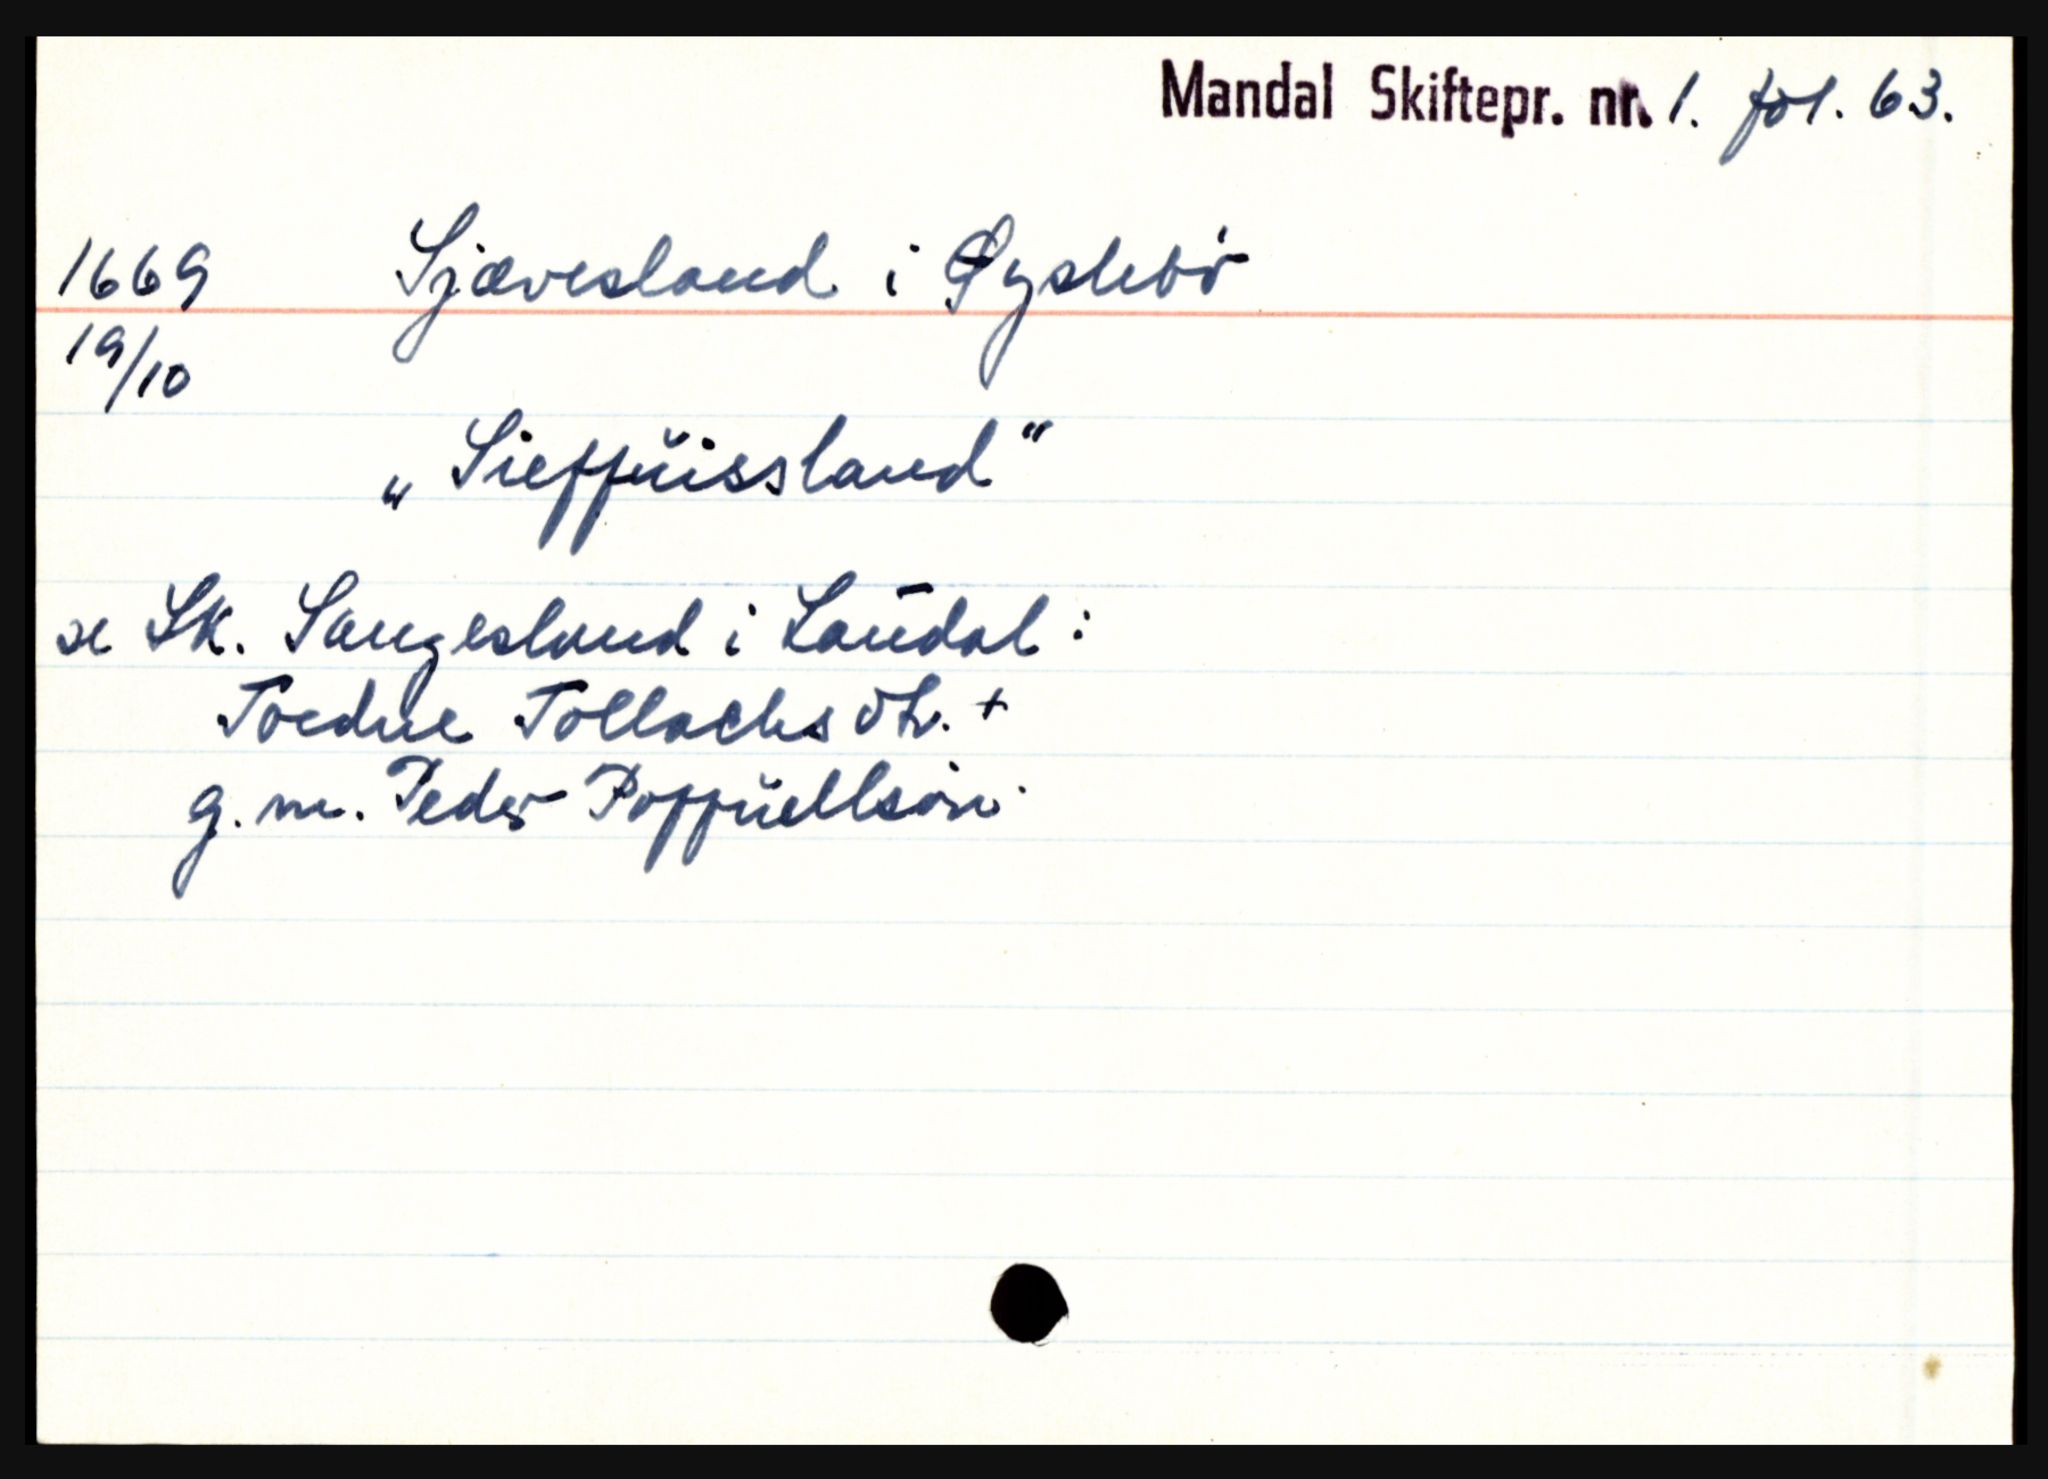 Mandal Skiftepr. nr. 1. fol. 63.
1669 Sjævesland i Øyslebø
19/10
„Sieffŭissland"
se Sk. Sangesland i Laudal:
Toedne Tollachs dtr. +
g. m. Peder Poffŭellsøn.